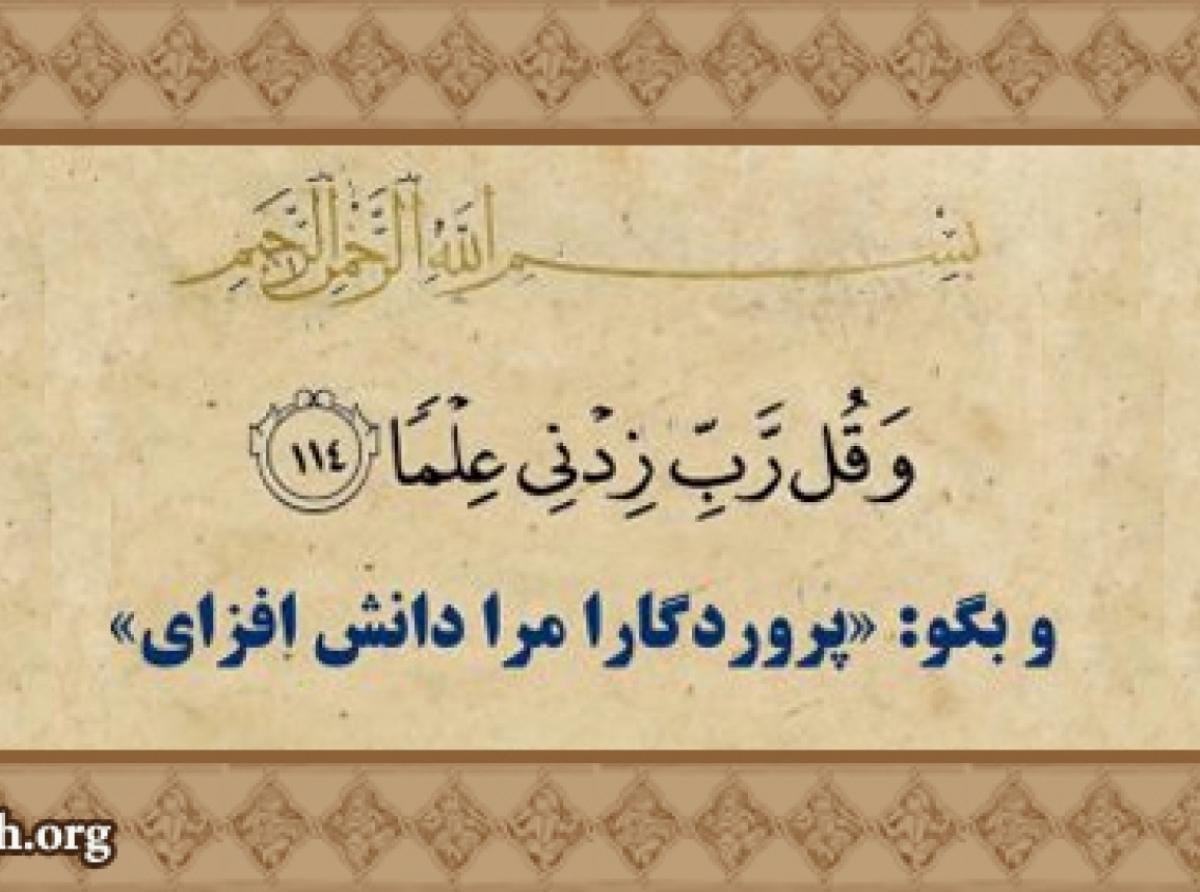 بِسْمِ اللَّهِ الرَّحْمَٰنِ الرَّحِيمِ
وَ قُل رَّبِّ زِدْنِي عِلْمًا ١١٤
و بگو: «پروردگارا مرا دانش افزای»
h.org